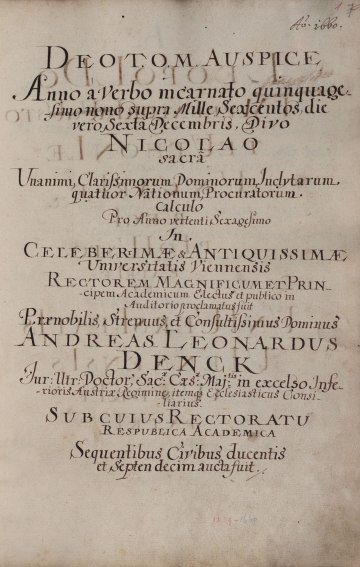 Ao. 1660.
DEO TOM. AUSPICE
Anno a Verbo incarnato quinquage-
simo nono supra Mille Sexcentos, die
vero Sexta Decembris, Divo
NICOLAO
sacrâ
Unanimi, Clarissimorum Dominorum, Inclytarum
quatuor Nationum, Procuratorum
Calculo
Pro Anno vertenti Sexagesimo
In
CELEBERIMÆ & ANTIQUISSIMÆ
Universitatis Viennensis
RECTOREM MAGNIFICUM ET PRIN-
cipem Academicum Electus et publico in
Auditorio proclamatus fuit
Prænobilis, Strenuus, et Consultissimus Dominus
ANDREAS LEONARDUS
DENCK
Jur: Utr: Doctor, Sac: Cæs: Maj: tis in excelso Infe-
rioris Austriæ Regimine, itemq; Ecclesiasticus Consi-
liarius.
SUB CUIUS RECTORATU
RESPUBLICA ACADEMICA
Sequentibus Civibus ducentis
et Septen decim aucta fuit.